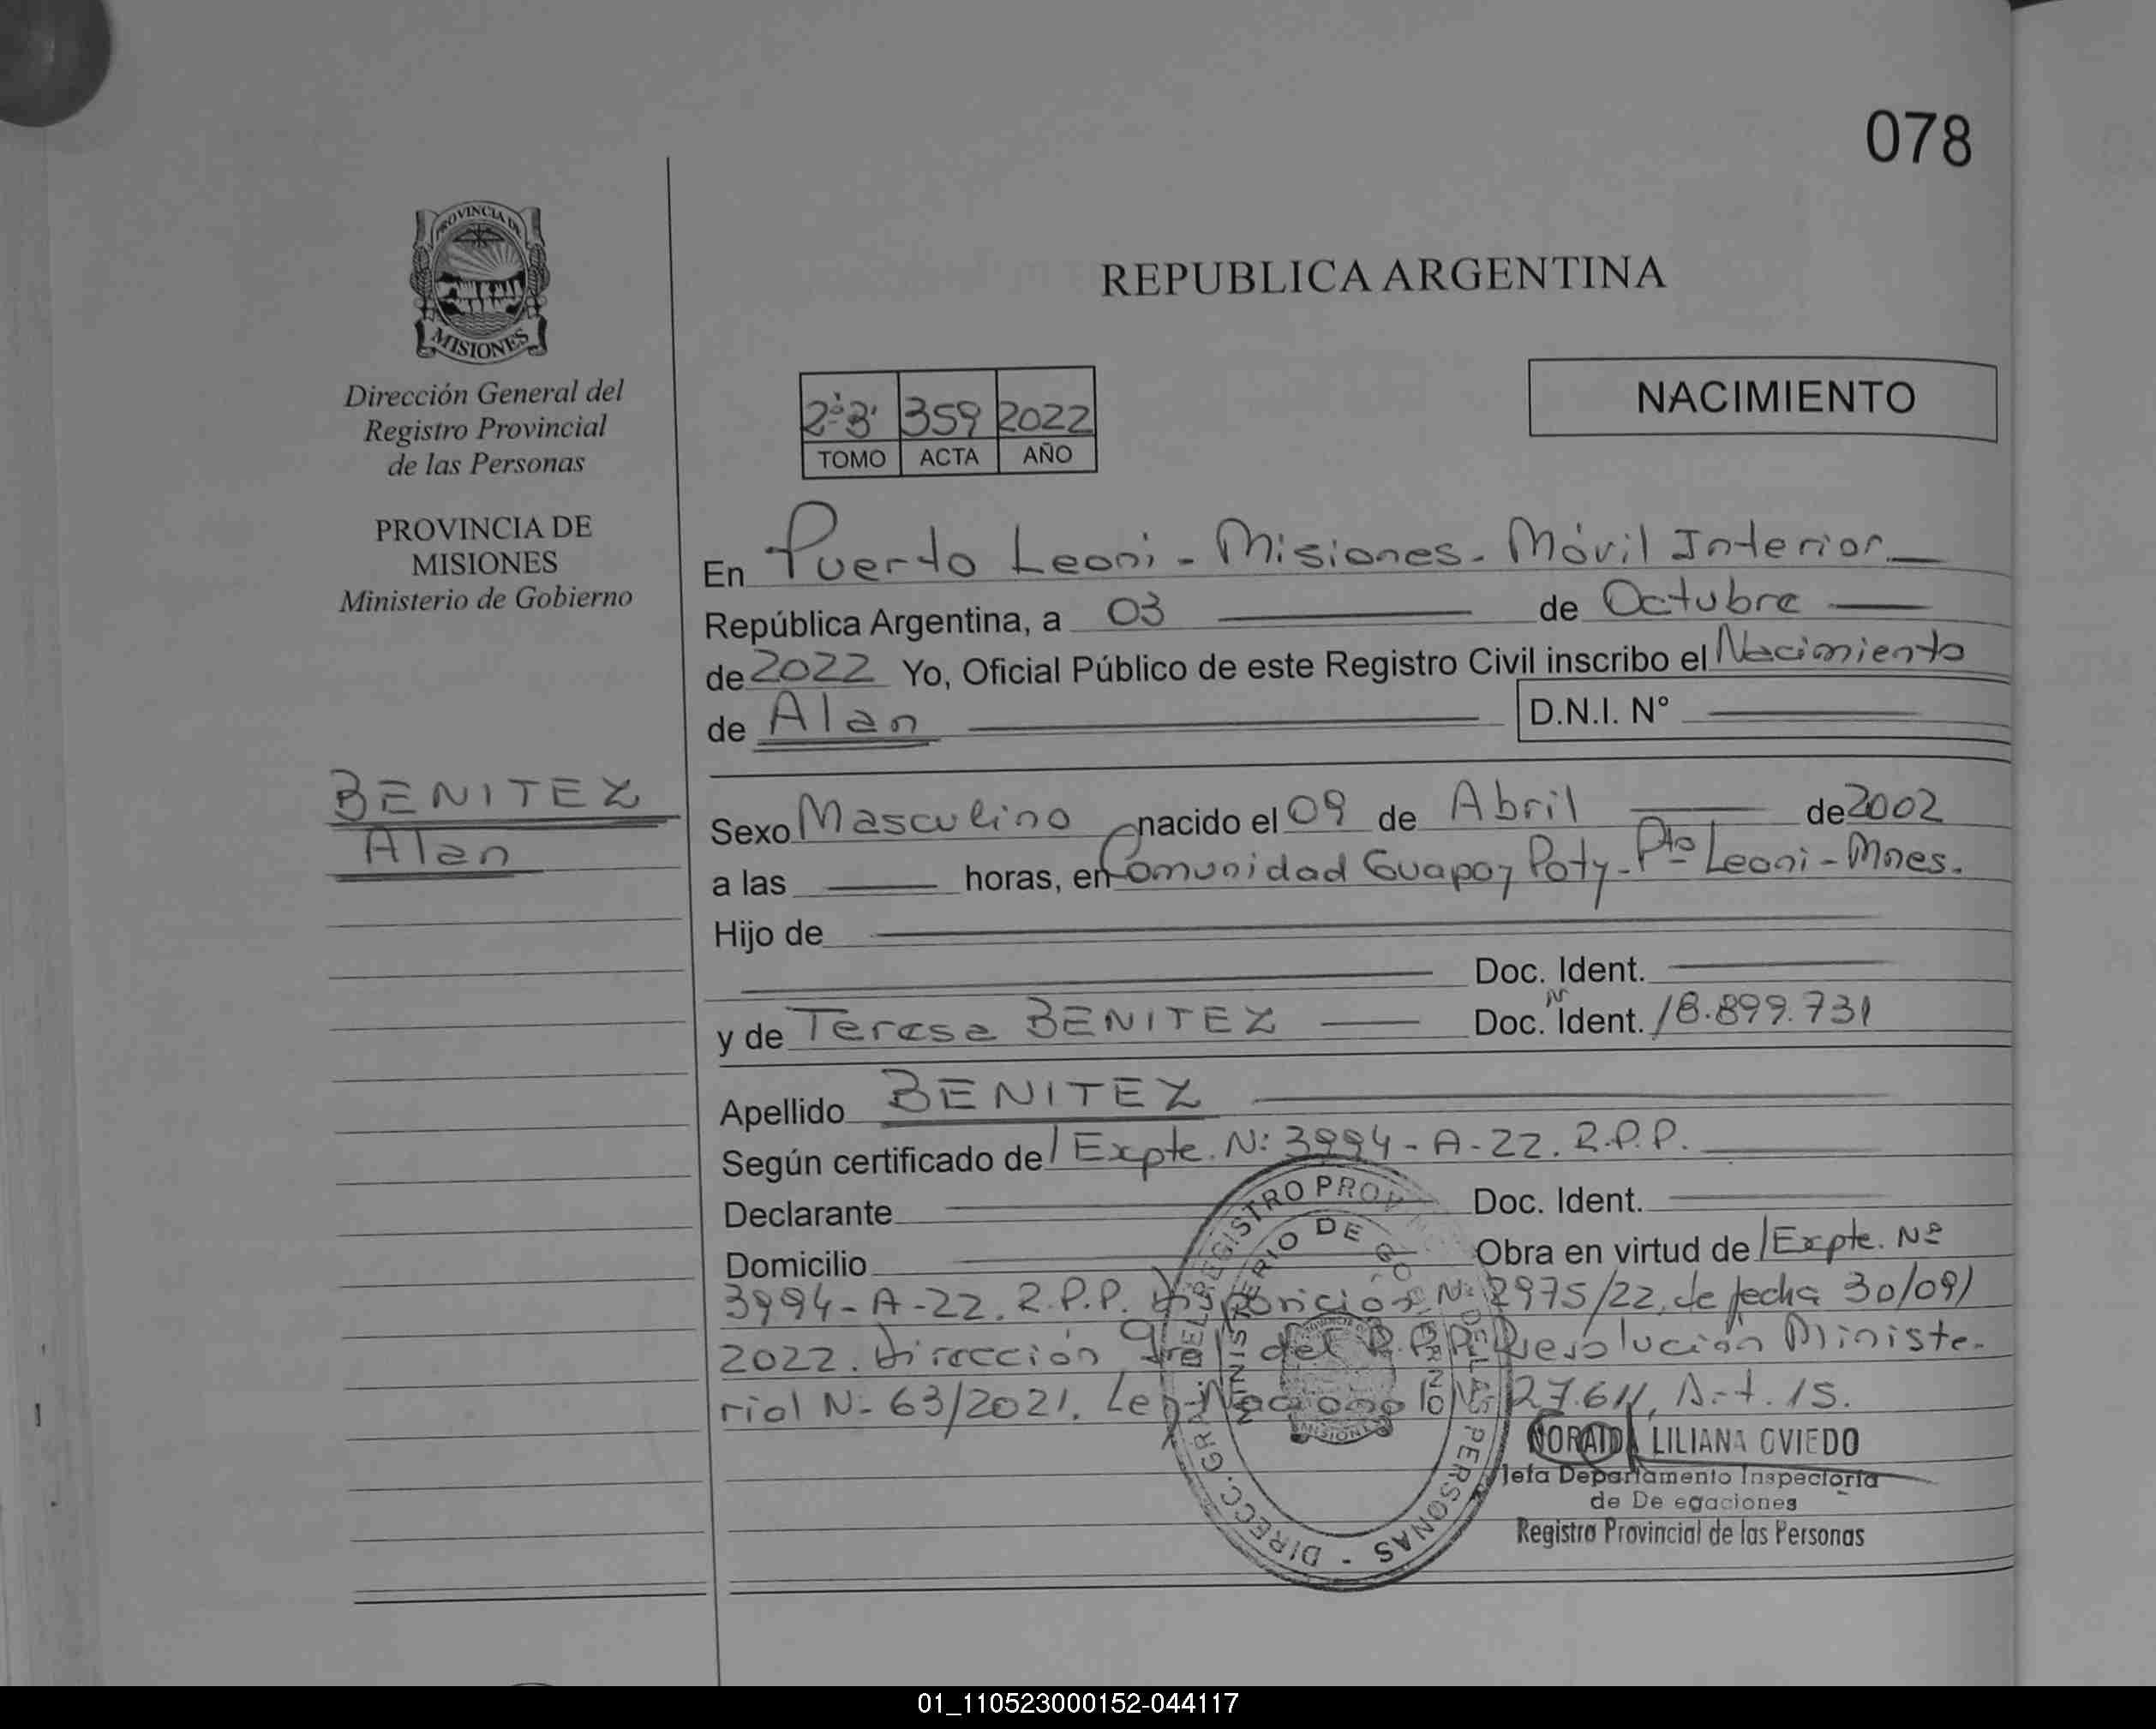 078
PROVINCIA DE
MISIONES
REPUBLICA ARGENTINA
Dirección General del
Registro Provincial
de las Personas
PROVINCIA DE
MISIONES
Ministerio de Gobierno
2º 3' 359 2022
TOMO ACTA AÑO
NACIMIENTO
En Puerto Leoni - Misiones - Móvil Interior
República Argentina, a 03 de Octubre
de 2022 Yo, Oficial Público de este Registro Civil inscribo el Nacimiento
de Alan D.N.I. N°
BENITEZ
Alan
Sexo Masculino nacido el 09 de Abril de 2002
a las horas, en Comunidad Guapoy Poty - Pto Leoni - Mnes.
Hijo de
Doc. Ident.
y de Teresa BENITEZ Doc. Ident. 18.899.731
Apellido BENITEZ
Según certificado de/ Expte. Nº 3994 - A - 22. R.P.P.
Declarante Doc. Ident.
Domicilio Obra en virtud de/ Expte. Nº
3994 - A - 22. R.P.P. Disposición Nº 2975/22, de fecha 30/09/
2022. Dirección Gral del R.P.P. Resolución Ministe-
rial Nº 63/2021. Ley Nacional Nº 27.611, Art. 15.
DIRECC. GRAL. DEL REGISTRO PROV. DE LAS PERSONAS -
MINISTERIO DE GOBIERNO
NORAIDA LILIANA OVIEDO
Jefa Departamento Inspectoría
de De egaciones
Registro Provincial de las Personas
01_110523000152-044117